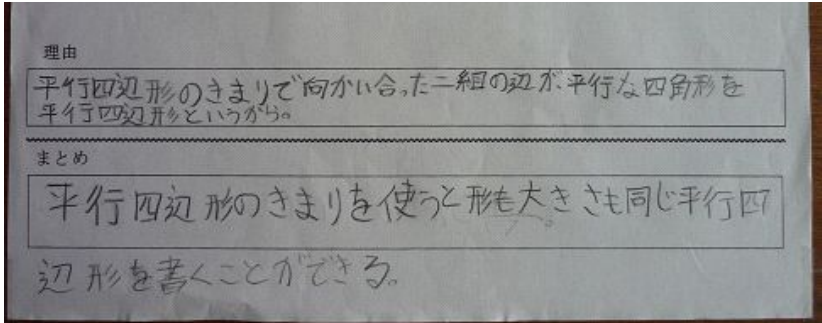 理由
平行四辺形のきまりで向かい合った二組の辺が、平行な四角形を
平行四辺形というから。
まとめ
平行四辺形のきまりを使うと形も大きさも同じ平行四
辺形を書くことができる。